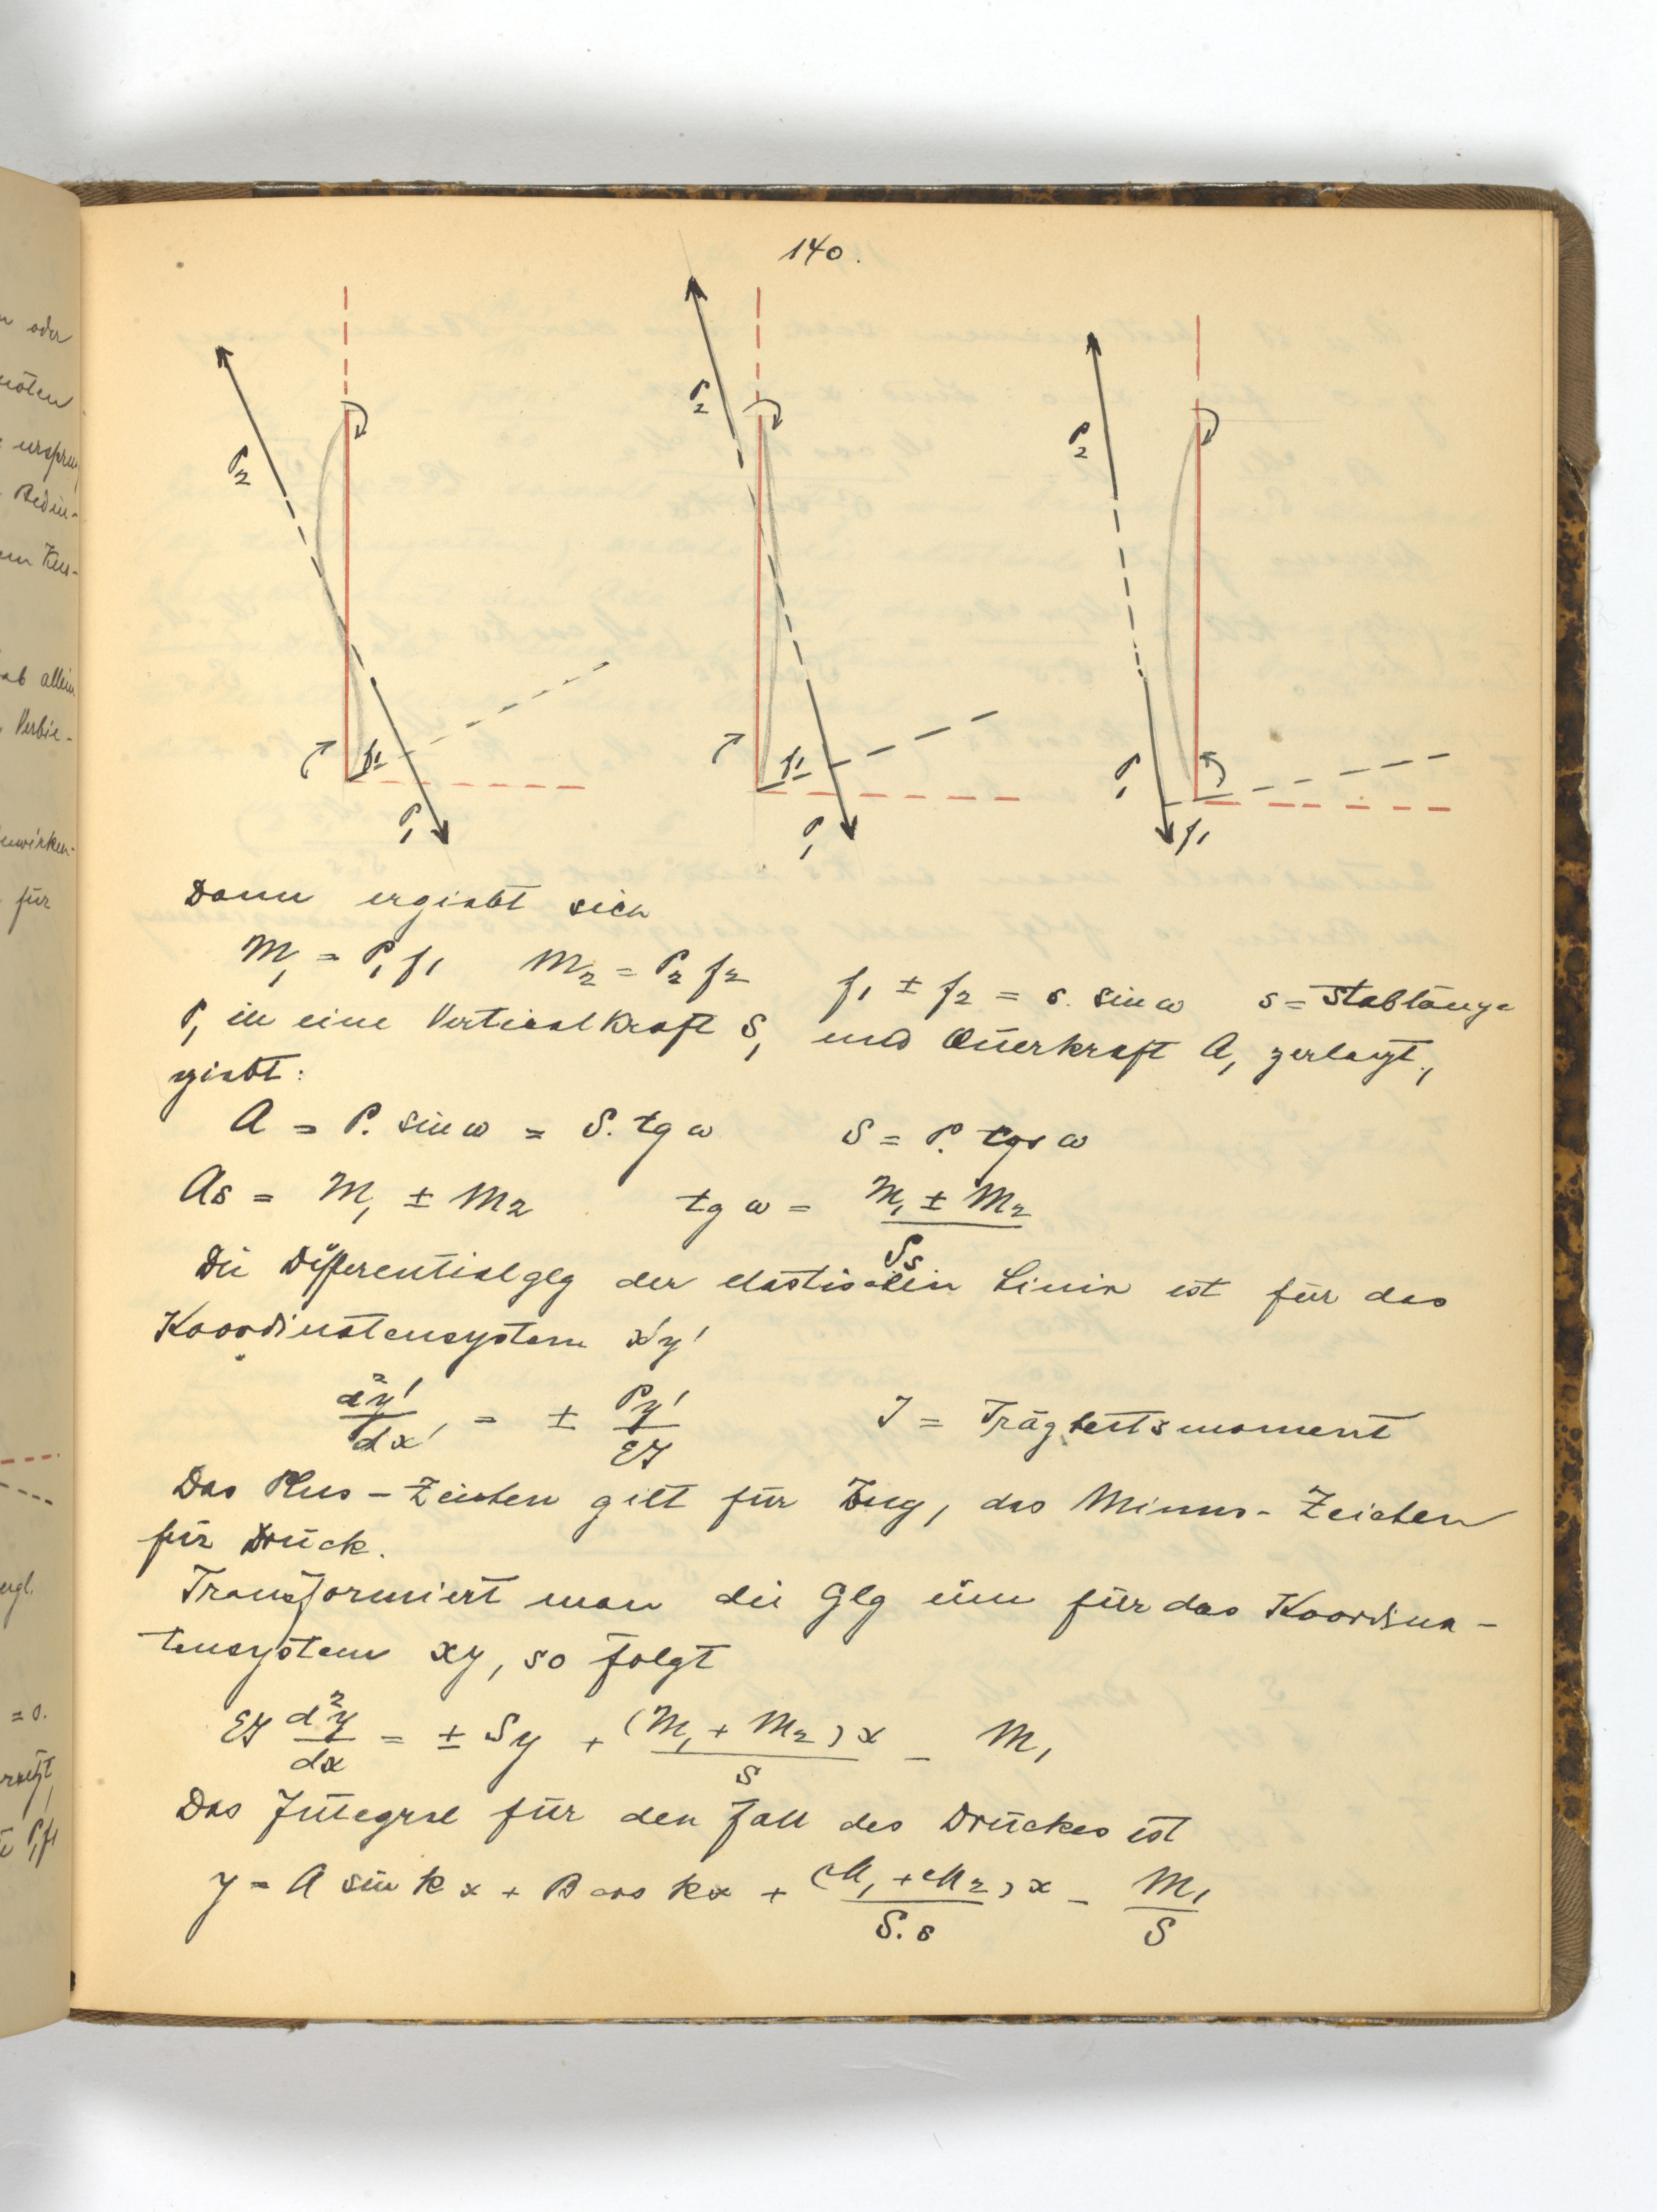 140.
P2 P2 P2
f1 f1 P1
P1 P1 f1
Dann ergiebt sich
M1 = P1 f1 M2 = P2 f2 f1 ± f2 = s. sin ω s = Stablänge
P1 in eine Vertical Kraft S1 und Querkraft A1 zerlegt,
giebt:
A = P. sin ω = S. tg ω S = P. cos ω
As = M1 ± M2 tg ω = (M1 ± M2)/Ss
Die Differentialglg der elastischen Linie ist für das
Koordinatensystem x'y'
d²y'/dx' = ± Py'/EJ J = Trägheitsmoment
Das Plus-Zeichen gilt für Zug, das Minus-Zeichen
für Druck.
Transformiert man die Glg um für das Koordina-
tensystem xy, so folgt
EJ d²y/dx = ± Sy + (M1 + M2)x/s - M1
Das Integral für den Fall des Druckes ist
y = A sin kx + B cos kx + (M1 + M2)x/S.s - M1/S
oder
ursprung
Bedin-
allein
Verbie-
für
= 0.
P1f1